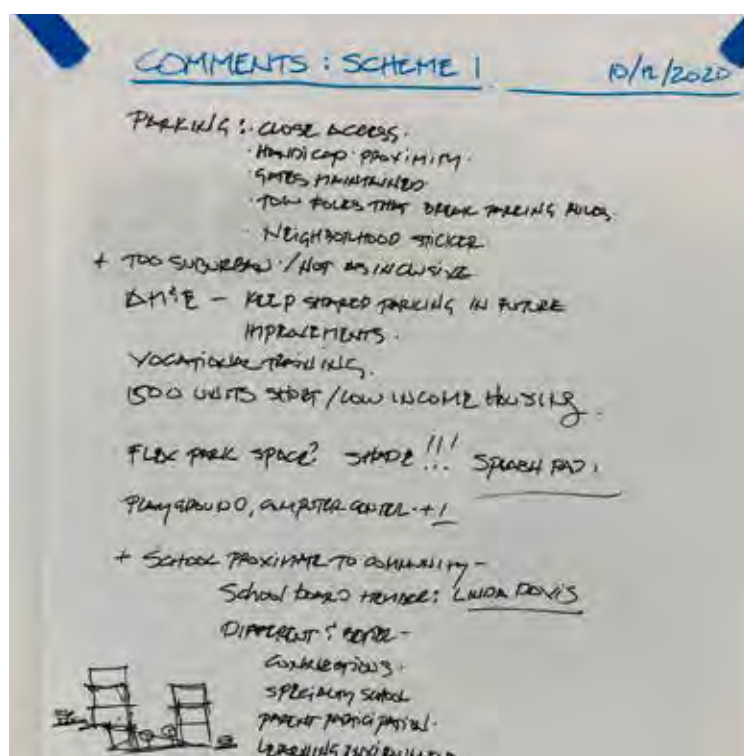 COMMENTS : SCHEME 1
10/12/2020
PARKING : · CLOSE ACCESS.
· HANDICAP PROXIMITY.
· GATES MAINTAINED
· TOW FOLKS THAT BREAK PARKING RULES.
· NEIGHBORHOOD STICKER
+ TOO SUBURBAN / NOT AS INCLUSIVE
- KEEP SHARED PARKING IN FUTURE
IMPROVEMENTS.
VOCATIONAL TRAINING.
1500 UNITS SHORT / LOW INCOME HOUSING.
FLEX PARK SPACE? SHADE !!! SPLASH PAD !
PLAYGROUND, COMPUTER CENTER. + 1
+ SCHOOL PROXIMATE TO COMMUNITY -
School BOARD MEMBER: LINDA DAVIS
DIFFERENT : BETTER -
CONNECTIONS.
SPECIALTY SCHOOL
PARENT PARTICIPATION.
LEARNING